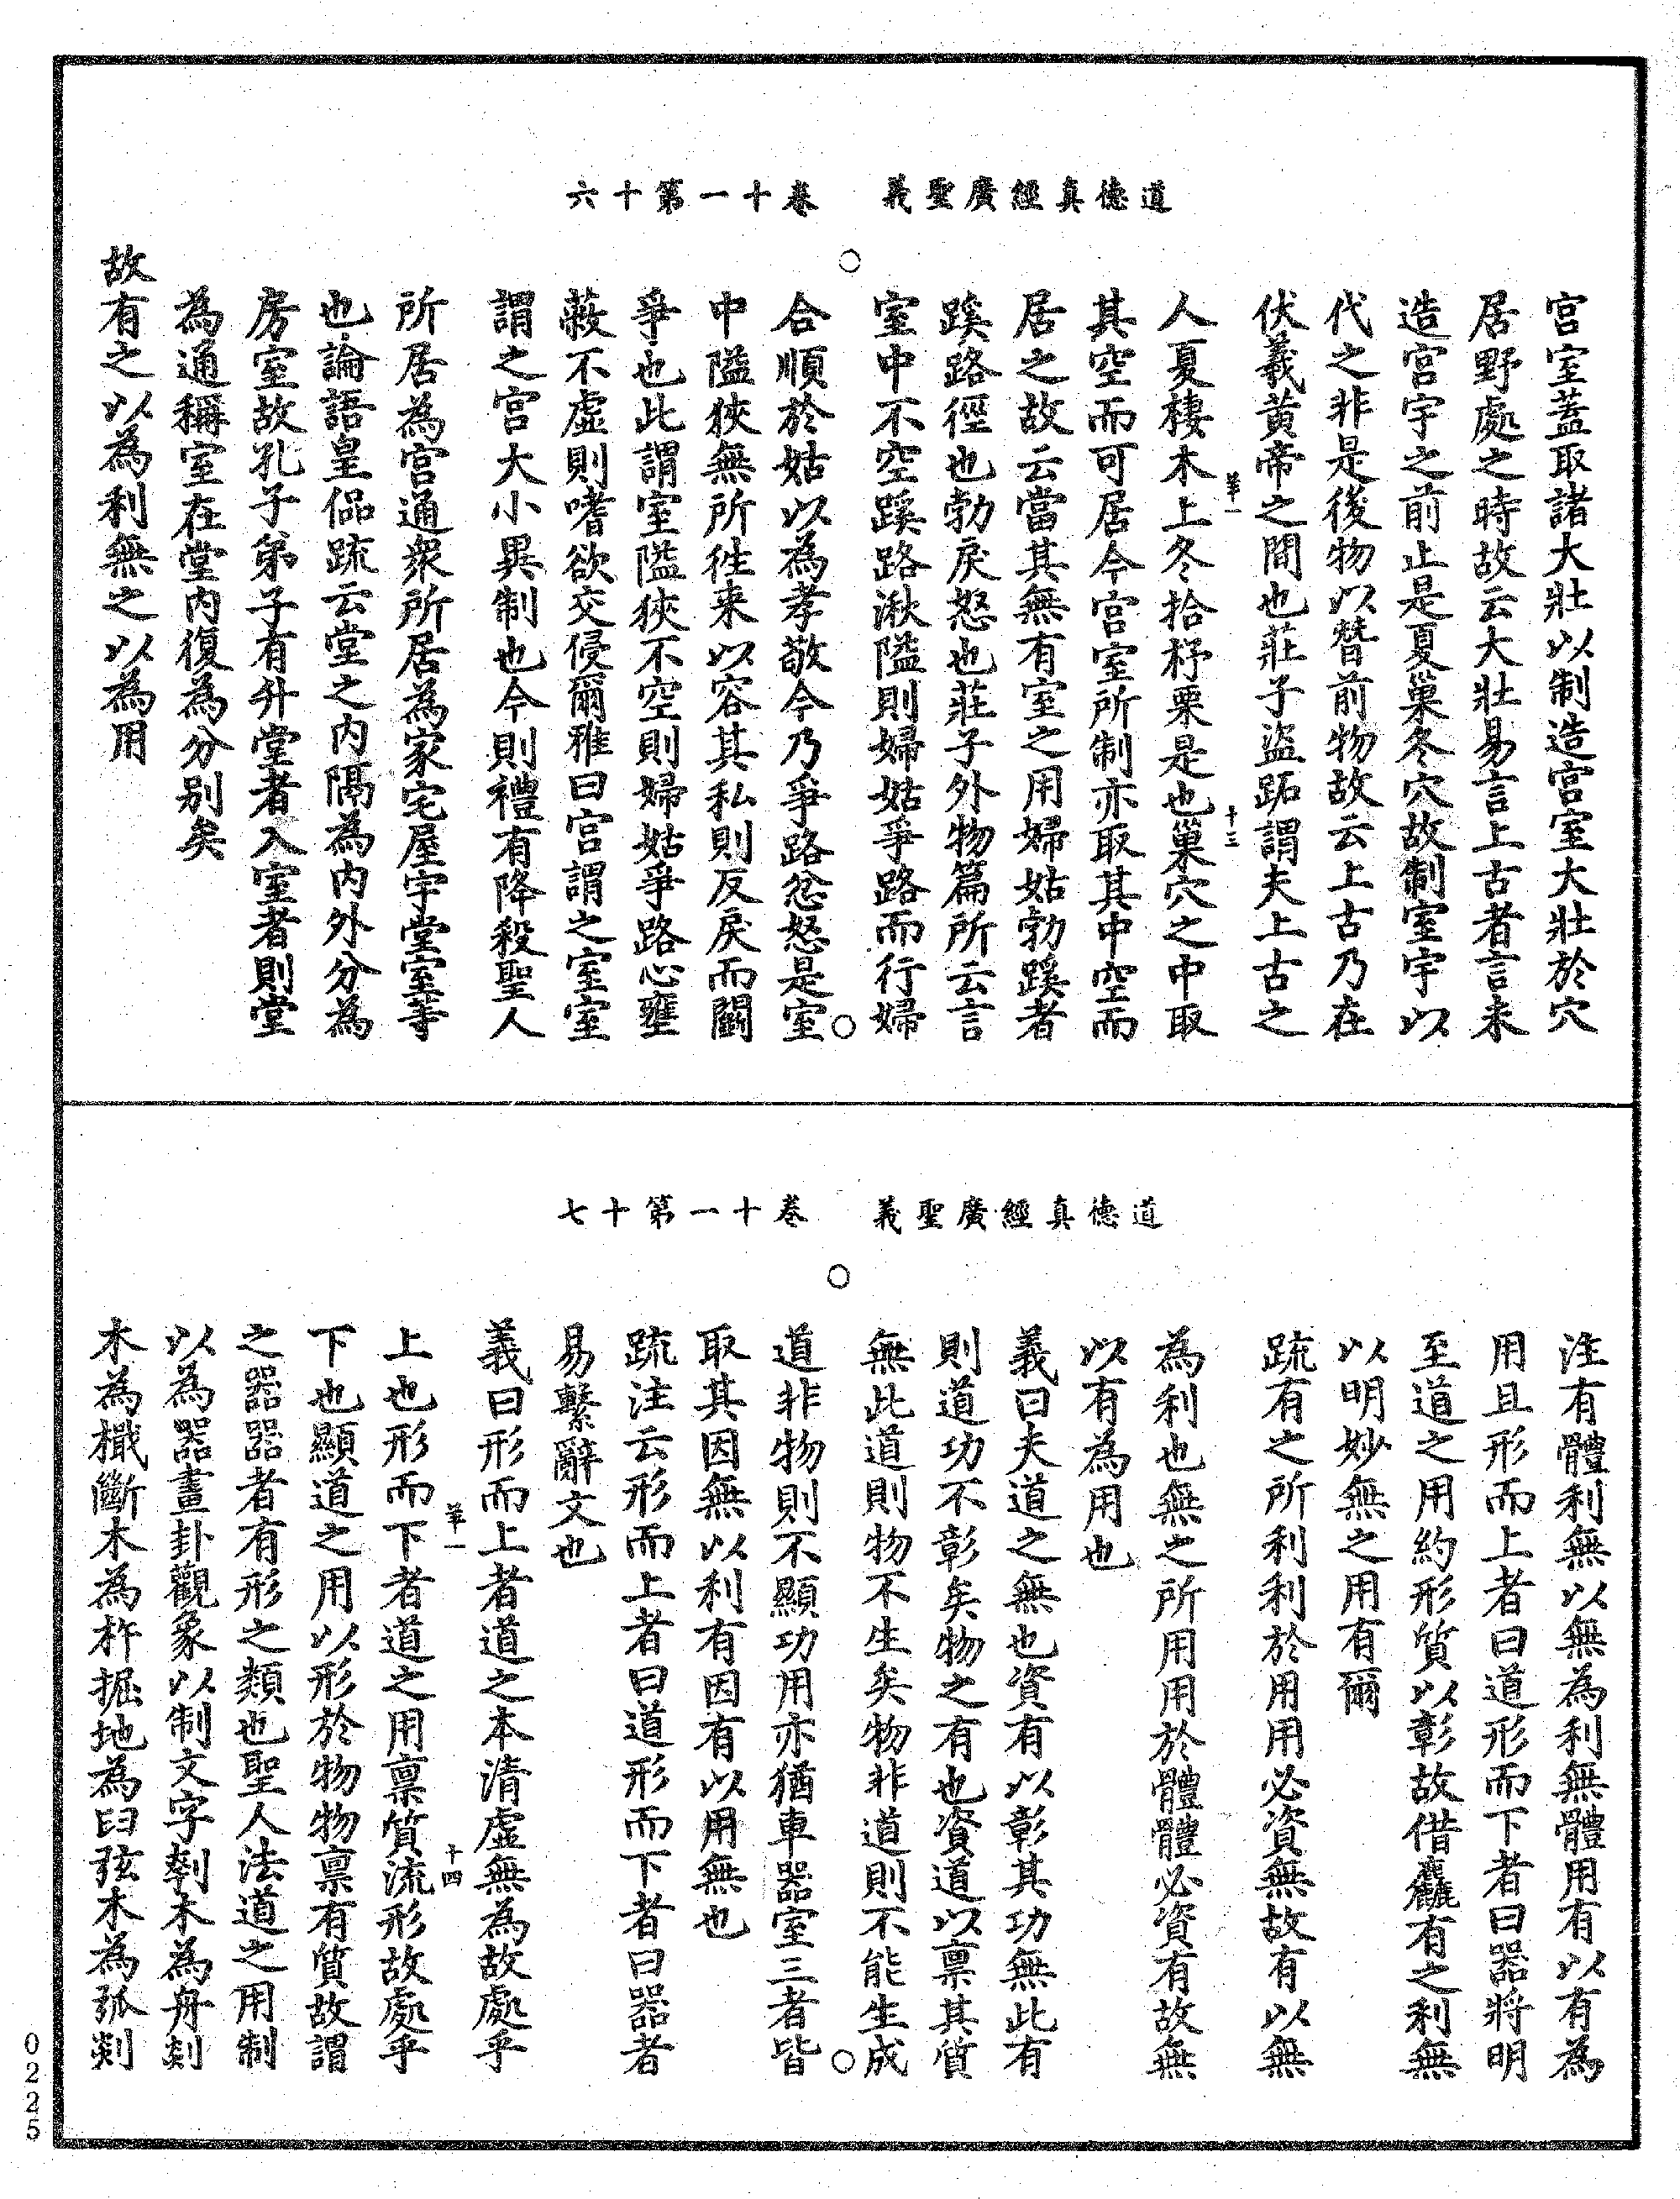 道德真經廣聖義　卷十一第十六
宫室蓋取諸大壯以制造宫室大壯於穴
居野處之時故云大壯易言上古者言未
造宫宇之前止是夏巢冬穴故制室宇以
代之非是後物以替前物故云上古乃在
伏羲黄帝之間也莊子盜跖謂夫上古之
羊一　十三
人夏棲木上冬拾杼栗是也巢穴之中取
其空而可居今宫室所制亦取其中空而
居之故云當其無有室之用婦姑勃蹊者
蹊路徑也勃戾怒也莊子外物篇所云言
室中不空蹊路湫隘則婦姑爭路而行婦
合順於姑以為孝敬今乃爭路忿怒是室
中隘狹無所徃来以容其私則反戾而鬭
爭也此謂室隘狹不空則婦姑爭路心壅
蔽不虛則嗜欲交侵爾雅曰宫謂之室室
謂之宫大小異制也今則禮有降殺聖人
所居為宫通衆所居為家宅屋宇堂室等
也論語皇侃䟽云堂之内隔為内外分為
房室故孔子弟子有升堂者入室者則堂
為通稱室在堂内復為分别矣
故有之以為利無之以為用
道德真經廣聖義　卷十一第十七
注有體利無以無為利無體用有以有為
用且形而上者曰道形而下者曰器將明
至道之用約形質以彰故借麤有之利無
以明妙無之用有爾
䟽有之所利利於用用必資無故有以無
為利也無之所用用於體體必資有故無
以有為用也
義曰夫道之無也資有以彰其功無此有
則道功不彰矣物之有也資道以禀其質
無此道則物不生矣物非道則不能生成
道非物則不顯功用亦猶車器室三者皆
取其因無以利有因有以用無也
䟽注云形而上者曰道形而下者曰器者
易繫辭文也
義曰形而上者道之本清虛無為故處乎
羊一　十四
上也形而下者道之用禀質流形故處乎
下也顯道之用以形於物物禀有質故謂
之器器者有形之類也聖人法道之用制
以為器畫卦觀象以制文字刳木為舟剡
木為檝斷木為杵掘地為臼弦木為弧剡
0225